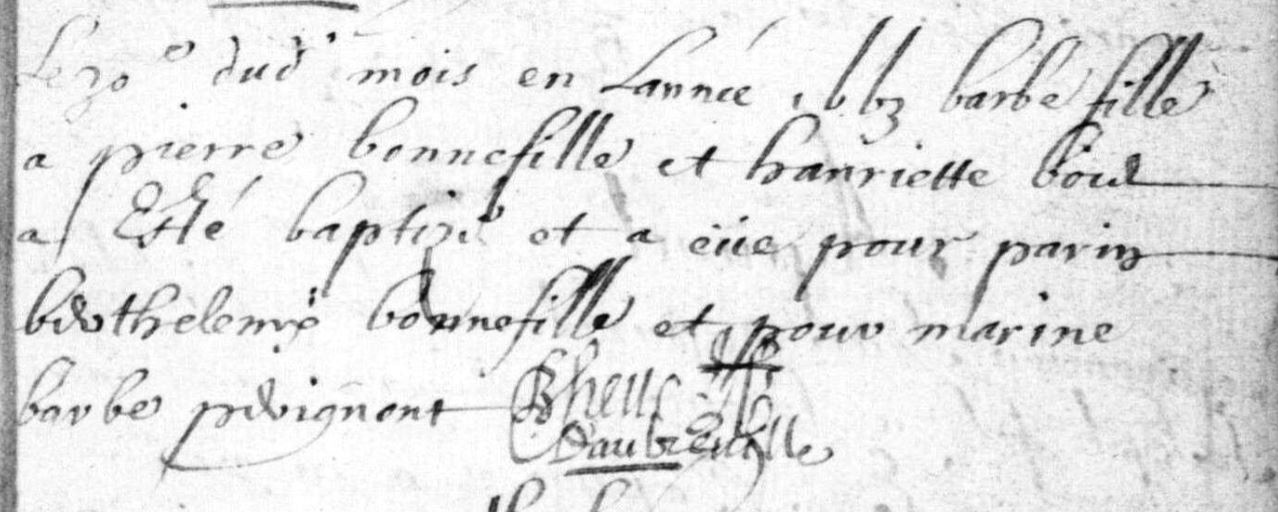 Le 30e dud mois en Lannée 1663 barbe fille
a pierre bonnefille et hanriette boid
a Esté baptizé et a eüe pour parin
berthelemÿ bonnefille et pour marine
barbe perignont
Daubreville